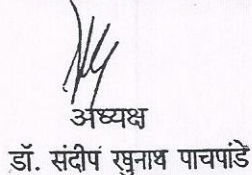 अध्यक्ष
डॉ. संदीप रघुनाथ पाचपांडे